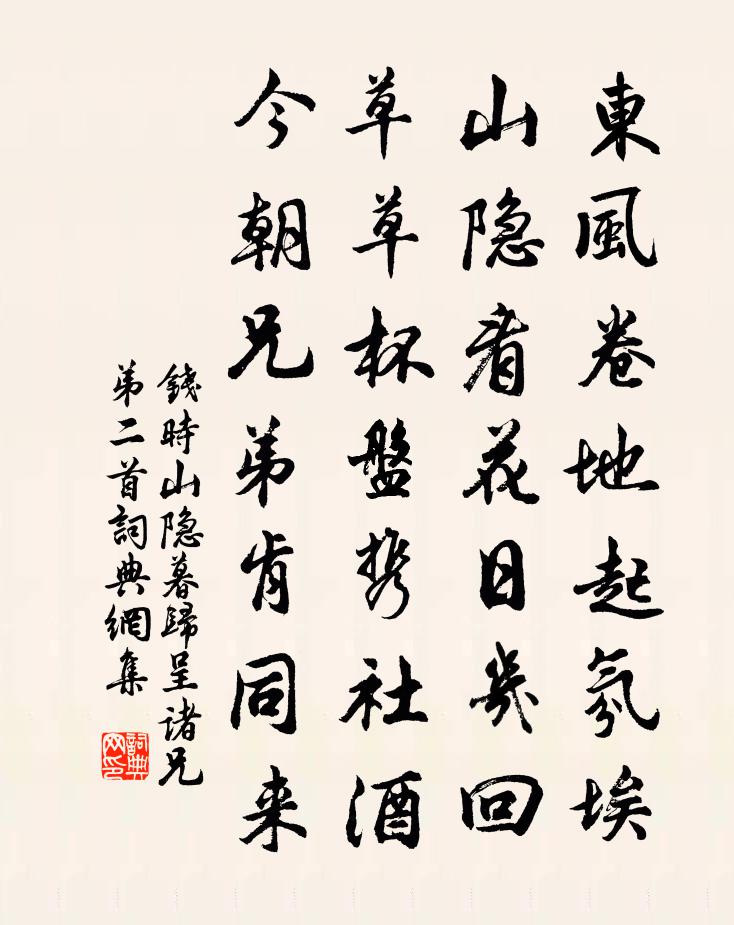 東風卷地起氛埃
山隐看花日幾回
草草杯盤携社酒
今朝兄弟肯同来
錢時山隐暮歸呈诸兄
第二首詞典網集
詞典
网印